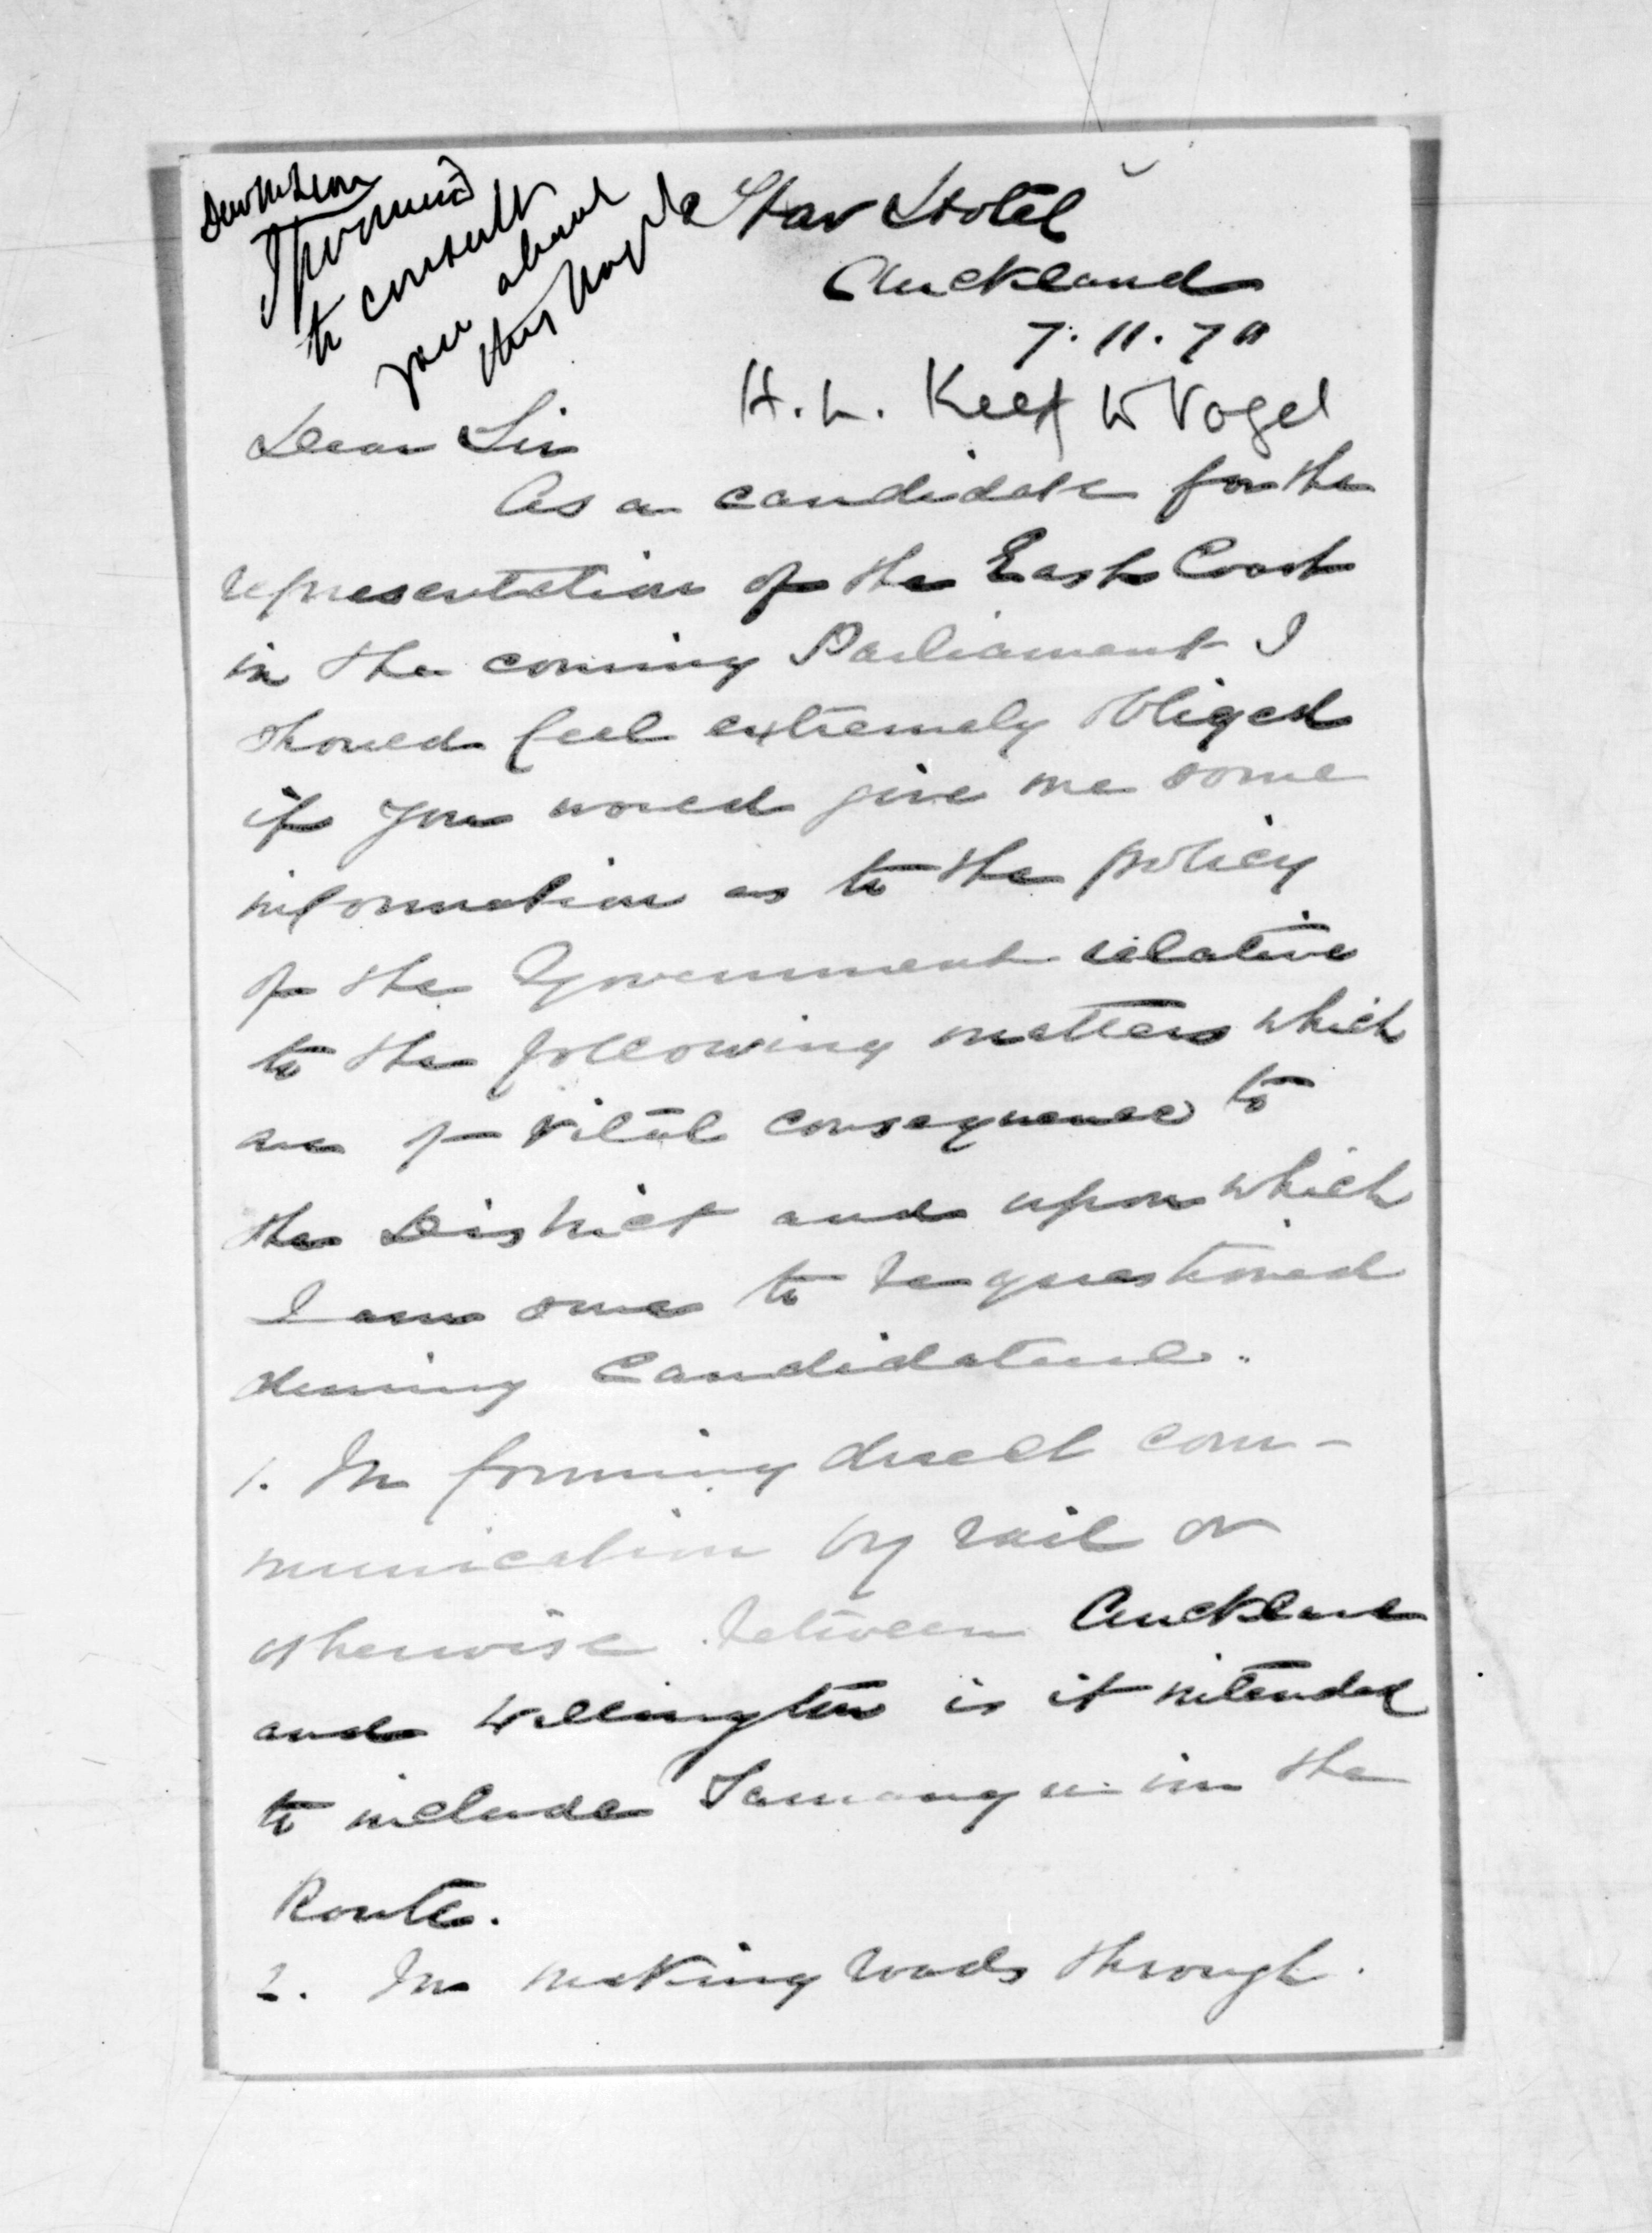 Dear McLean
I promised
to consult
you about
this Vogel
Star Hotel
Auckland
7.11.70
H. L. Keef W Vogel
Dear Sir
As a candidate for the
representation of the East Coast
in the coming Parliament I
should feel extremely obliged
if you would give me some
information as to the policy
of the Government relative
to the following matters which
are of vital consequence to
the District and upon which
I am sure to be questioned
during Candidature.
1. In forming direct com-
munication by rail or
otherwise between Auckland
and Wellington is it intended
to include in the
Route.
2. In making roads through